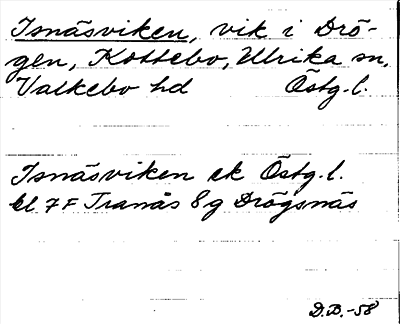 Isnäsviken, vik i Drö-
gen, Kottebo, Ulrika sn,
Valkebo hd Östg. l.
Isnäsviken ek Östg. l.
bl 7F Tranås 8g Drögsnäs
D.B.-58